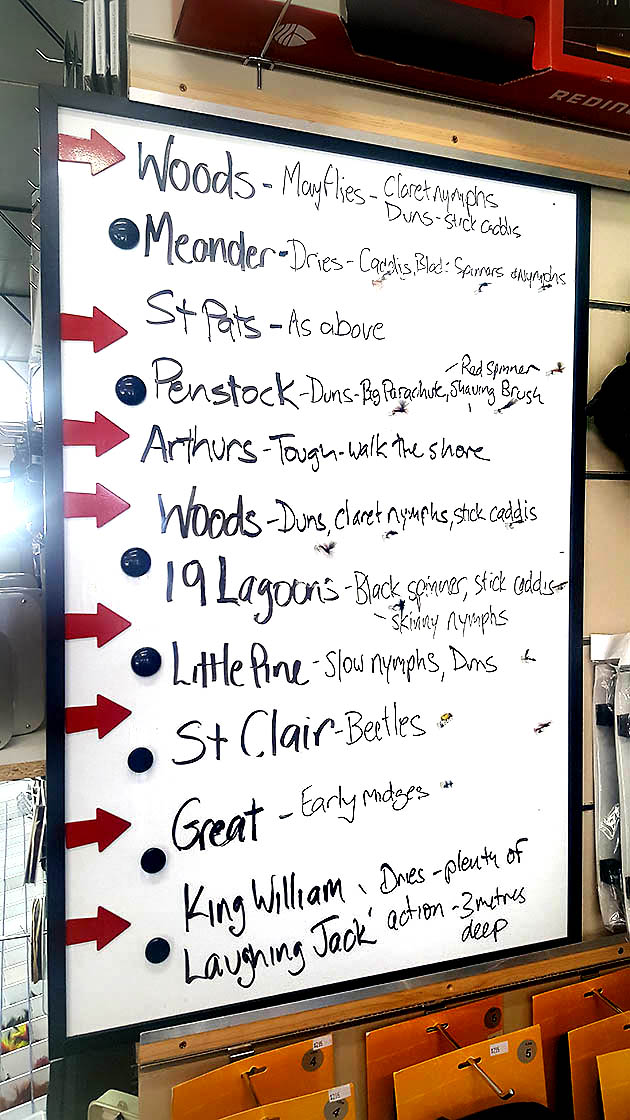 REDIN
Woods - Mayflies - Claret nymphs
Duns - stick caddis
Meander - Dries - Caddis, Black Spinners & Nymphs
St Pats - As above
Penstock - Duns - Big Parachute, Shaving Brush
- Red Spinner
Arthurs - Tough - walk the shore
Woods - Duns, claret nymphs, stick caddis
19 Lagoons - Black spinner, stick caddis
- skinny nymphs
Little Pine - Slow nymphs, Duns
St Clair - Beetles
Great - Early midges
King William , Dries - plenty of
Laughing Jack action - 3 metres
deep
4
5
6
4